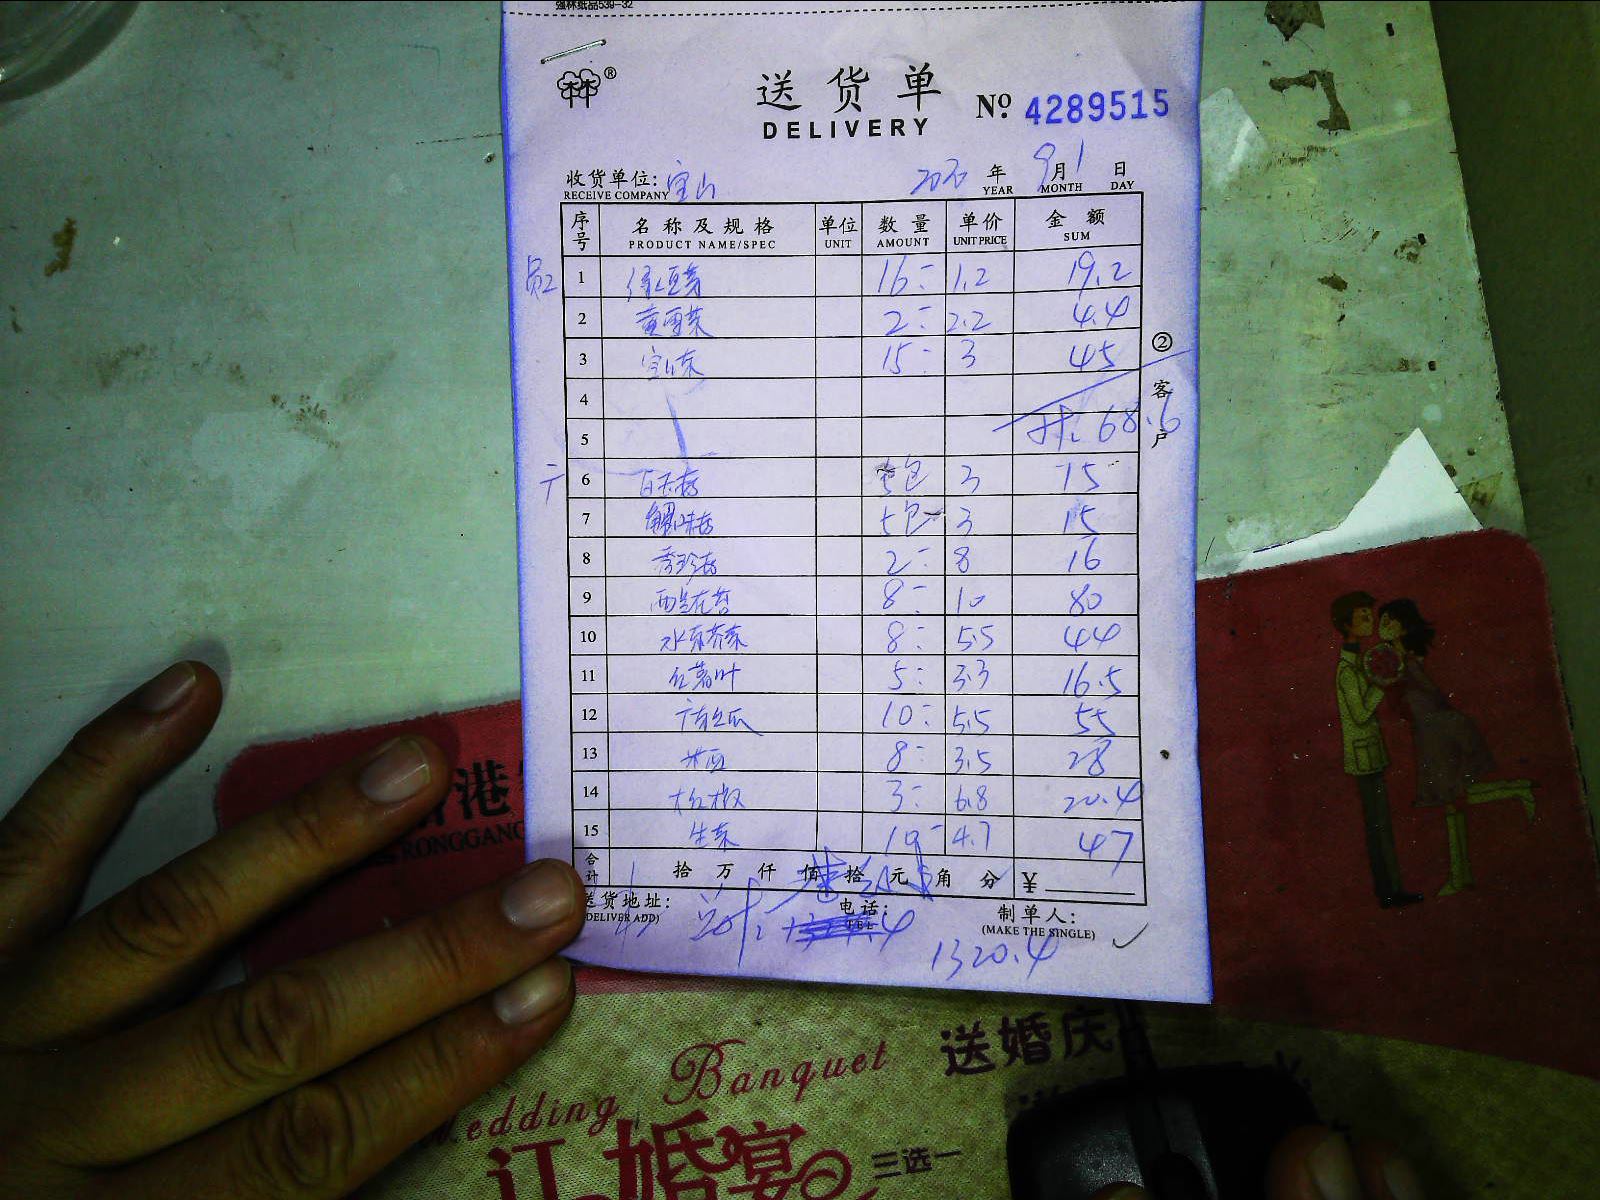 强林纸品539-32
林林®
送货单
DELIVERY
No. 4289515
收货单位: 宝山 2020 年 9月1日
RECEIVE COMPANY YEAR MONTH DAY
序号 名称及规格 单位 数量 单价 金额
PRODUCT NAME/SPEC UNIT AMOUNT UNIT PRICE SUM
员工 1 绿豆芽 16- 1.2 19.2
2 黄豆芽 2- 2.2 4.4
3 15- 3 45
② 客户
4
5 计: 68.6
6 白玉菇 5包 3 15
7 蟹味菇 5包 3 15
8 秀珍菇 2- 8 16
9 西兰花苔 8- 10 80
10 水东芥菜 8- 5.5 44
11 红薯叶 5- 3.3 16.5
12 10- 5.5 55
13 8- 3.5 28
14 大红椒 3- 6.8 20.4
15 生菜 10- 4.7 47
合计 拾 万 仟 佰 拾 元 角 分 ¥
送货地址: 电话: 制单人:
(DELIVER ADD) TEL (MAKE THE SINGLE)
总计: 1320.4
港
RONGGANG
Wedding Banquet
送婚庆
订婚宴
三选一